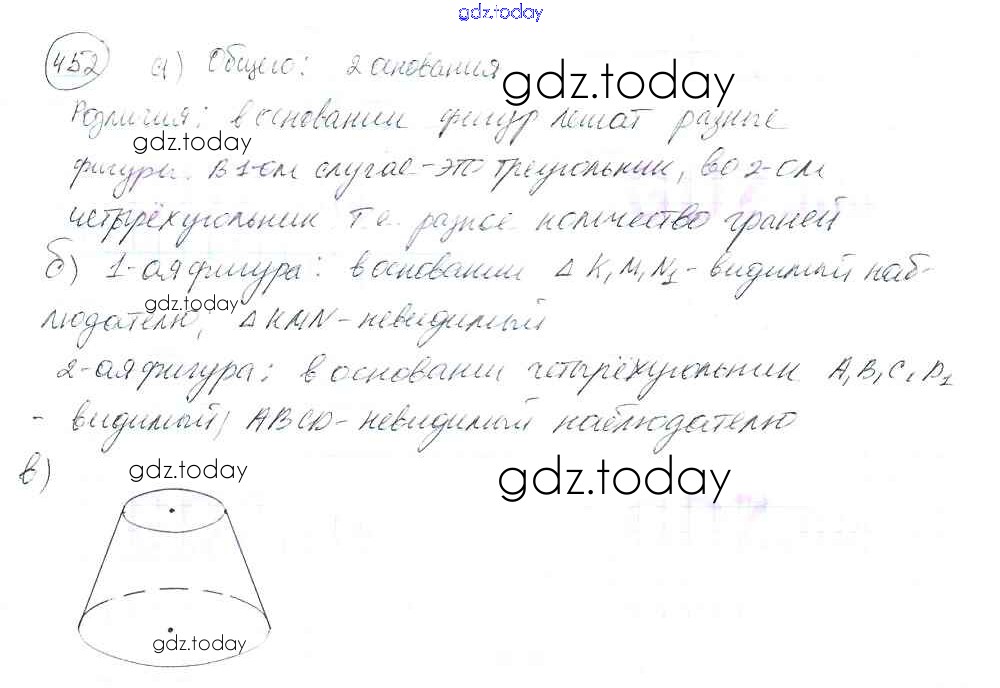 gdz.today
452 а) Общего: 2 основания
gdz.today
Различия: в основании фигур лежат разные
gdz.today
фигуры. В 1-ом случае - это треугольник, во 2-ом
четырёхугольник т.е. разное количество граней
б) 1-ая фигура: в основании Δ K₁M₁N₁ - видимый наб-
gdz.today
людателю, Δ KMN - невидимый
2-ая фигура: в основании четырёхугольник A₁B₁C₁D₁
- видимый, ABCD - невидимый наблюдателю
в)
gdz.today
gdz.today
gdz.today